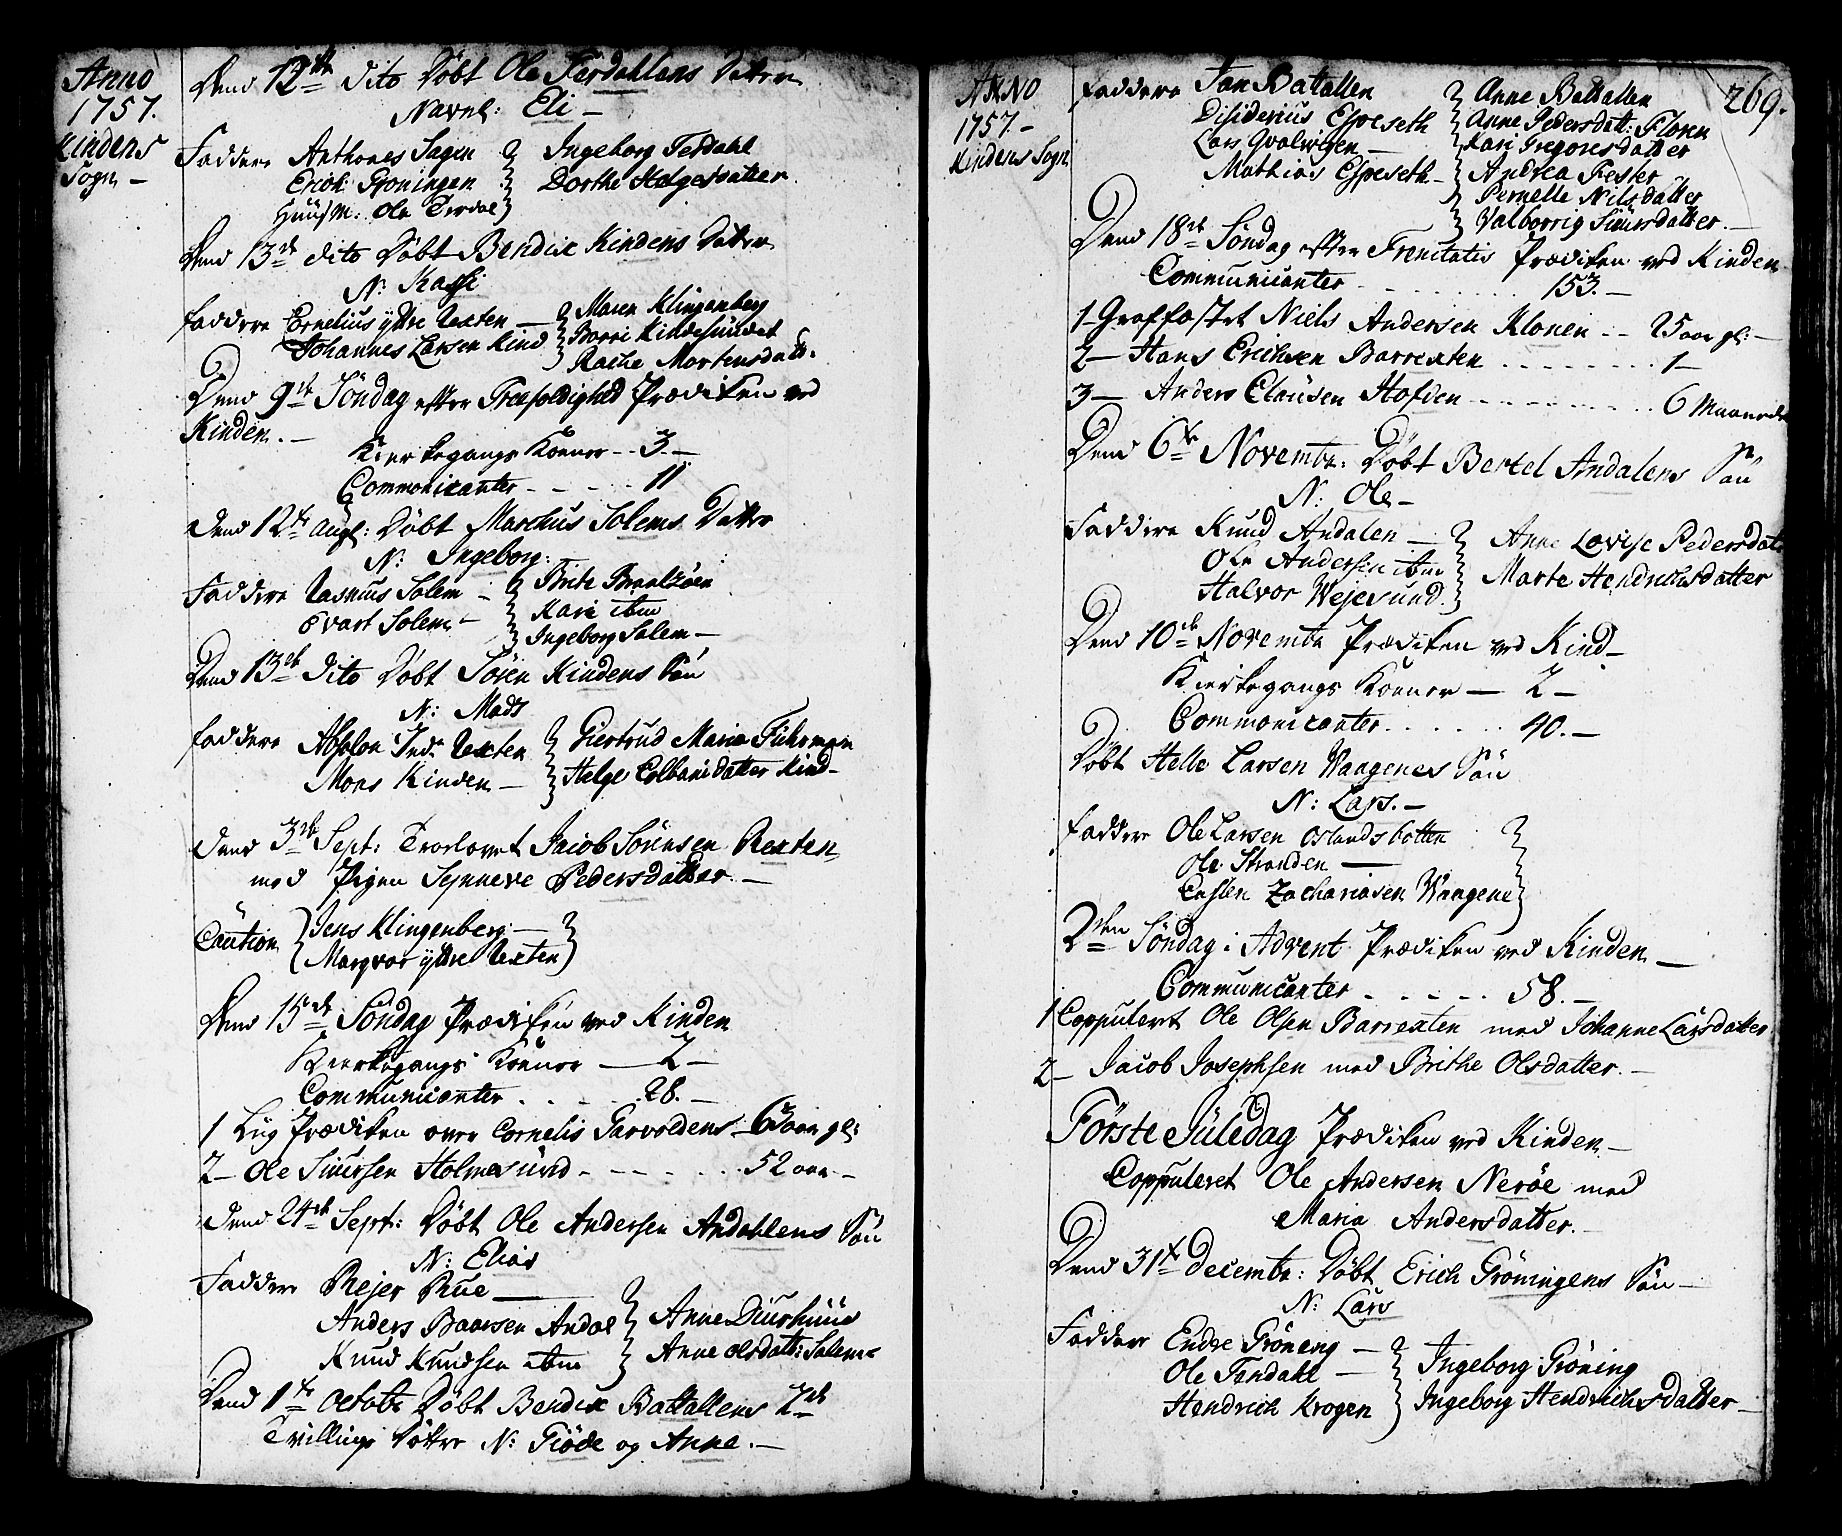 Anno
1757.
Kindens
Sogn —
Dend 12te dito Döbt Ole Ferdahlens Datter
Navnl: Eli —
Faddere Anthones Sagen
Erich Gröningen
Huusm: Ole Ferdal
Ingeborg Ferdahl
Dorthe Helgesdatter
Dend 13de dito Döbt Bendix Kindens Datter
N: Kassi
faddere Cornelius ydtre Rexten —
Johannes Larsen Kind
Maren Klingenberg
Borri Kindesundet
Rache Mortensdatt:
Dend 9de Söndag efter Treefoldighed Prædiken ved
Kinden. —
Kierkegangs Koener - - 3. —
Commonicanter - - - - - 11
Dend 12te Augt: Döbt Marchus Solems Datter
N: Ingeborg:
Faddere Rasmus Solem —
Evart Solem —
Brite Brantzöen
Kari ibm
Ingeborg Solem —
Dend 13de dito Döbt Sören Kindens Sön
N: Mads
faddere Absolon Indr Rexten
Mons Kinden —
Giertrud Maria Fuhrman
Helge Colbansdatter Kind —
Dend 3de Sept: Trolovet Jacob Sörensen Rexten
med Pigen Synneve Pedersdatter. —
Caution Jens Klingenberg —
Margvor ydtre Rexten
Dend 15de Söndag Prædiken ved Kinden
Kierkegangs Koener — 2 —
Communicanter . . . . . 28. —
1 Liig Prædiken over Cornelis Sarvoldens 60 aar gl:
2 — Ole Siursen Holmesund - - - - - - 52 aar —
Dend 24de Sept: Döbt Ole Andersen Andahlens Sön
N: Elias
Faddere Rejer Rue —
Anders Baarsen Andal
Knud Knudsen ibm
Anne Duushuus
Anne Olsdatt: Solem —
Dend 1te Octobr Döbt Bendix Battallens 2de
Tvillings Döttre N: Giöde og Anne. —
ANNO
1757. —
Kindens Sogn
269.
faddere Jan Batallen
Disiderius Espeseth
Lars Qvalvigen —
Mathias Espeseth —
Anne Battallen
Anne Pedersdatt: Floren
Kari Gregoriesdatter
Andrea Fester
Pernelle Nilsdatter
Valborrig Siursdatter. —
Dend 18de Söndag efter Trenitatis Prædiken ved Kinden
Communicanter - - - - - - - 153. —
1 — Graffæstet Niels Andersen Klonen - - 25 aar gl: —
2 — Hans Erichsen Barrexten - - - - - - - - 1 —
3 — Anders Clausen Hofden - - - - - - - - - 6 Maaneder
Dend 6te Novembr: Döbt Bertel Andalens Sön
N: Ole —
Faddere Knud Andalen —
Ole Andersen ibm
Halvor Vejesund
Anne Lovise Pedersdatt
Marte Hendrichsdatter
Dend 10de Novembr Prædiken ved Kind —
Kierkegangs Koener — 2 —
Commonicanter . . . . . . 40. —
Döbt Helle Larsen Vaagenes Sön
N: Lars. —
faddere Ole Larsen Oslandsbotten
Ole Stranden —
Casten Zachariasen Vaagene
2den Söndag i Advent Prædiken ved Kinden —
Communicanter . . . . . 58. —
1 Coppuleret Ole Olsen Barrexten med Johanne Larsdatter
2 — Jacob Josephsen med Brithe Olsdatter. —
Förste Juledag Prædiken ved Kinden —
Coppuleret Ole Andersen Neröe med
Maria Andersdatter. —
Dend 31te Decembr: Döbt Erich Gröningens Sön —
N: Lars
Faddere Endre Gröneng —
Ole Tandahl —
Hendrich Krogen
Ingeborg Gröning
Ingeborg Hendrichsdatter —